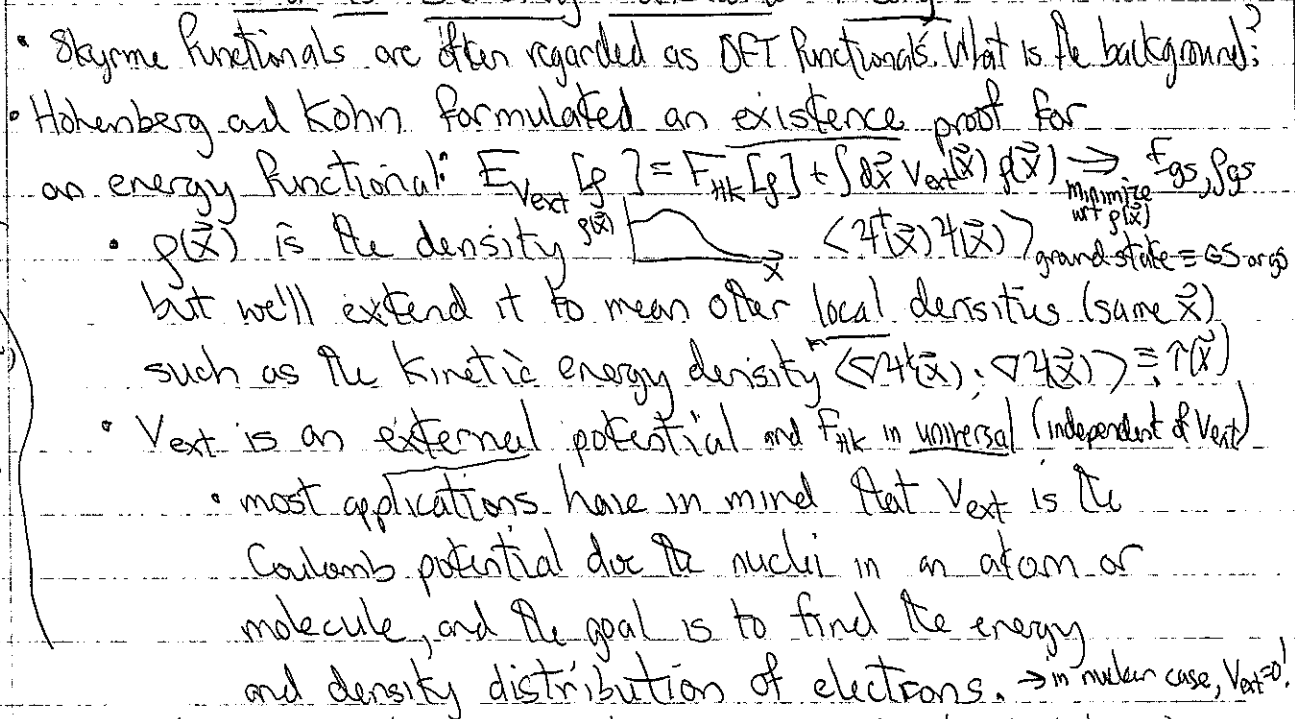 • Skyrme functionals are often regarded as DFT functionals. What is the background?
• Hohenberg and Kohn formulated an existence proof for
an energy functional: E_{V_ext}[ρ] = F_{HK}[ρ] + ∫dx⃗ V_ext(x⃗) ρ(x⃗) ⟶ E_gs, ρ_gs
minimize wrt ρ(x⃗)
• ρ(x⃗) is the density ρ(x⃗) x⃗ <ψ†(x⃗)ψ(x⃗)>_{ground-state ≡ GS or gs}
but we'll extend it to mean other local densities (same x⃗)
such as the kinetic energy density <∇ψ†(x⃗)·∇ψ(x⃗)> ≡ τ(x⃗)
• V_ext is an external potential and F_HK is universal (independent of V_ext)
• most applications have in mind that V_ext is the
Coulomb potential due the nuclei in an atom or
molecule, and the goal is to find the energy
and density distribution of electrons. → in nuclear case, V_ext=0!